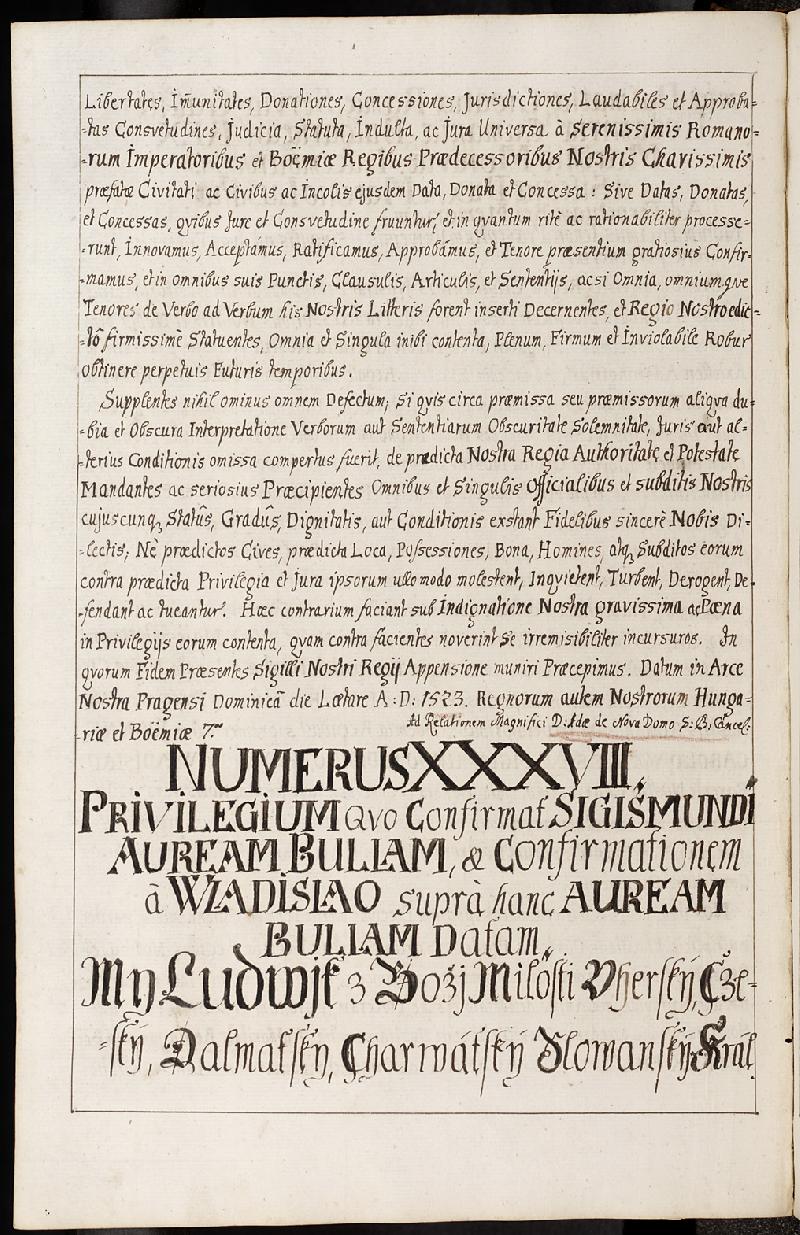 Libertates, Im̄unitates, Donationes, Concessiones, Jurisdictiones, Laudabiles et Approba-
-tas Consvetudines, Judicia, Statuta, Indulta, ac Jura Universa à Serenissimis Romano-
-rum Imperatoribus et Boëmiæ Regibus Prædecessoribus Nostris Charissimis
præfatæ Civitati ac Civibus ac Incolis ejusdem Data, Donata et Concessa: Sive Datas, Donatas,
et Concessas, qvibus Jure et Consvetudine fruuntur, et in qvantum ritè ac rationabiliter processe-
-runt, Innovamus, Acceptamus, Ratificamus, Approbamus, et Tenore præsentium gratiosius Confir-
-mamus, et in omnibus suis Punctis, Clausulis, Articulis, et Sententijs, ac si Omnia, omniumqve
Tenores de Verbo ad Verbum his Nostris Litteris forent inserti Decernentes, et Regio Nostro edic-
-tô firmissimè Statuentes, Omnia et Singula inibi contenta, Plenum, Firmum et Inviolabile Robur
obtinere perpetuis Futuris temporibus.
Supplentes nihil ominus omnem Defectum; Si qvis circa præmissa seu præmissorum aliqva du-
-bia et Obscura Interpretatione Verborum aut Sententiarum Obscuritate Solemnitate, Juris aut al-
-terius Conditionis omissa compertus fuerit, de prædicta Nostra Regia Authoritate et Potestate
Mandantes ac seriosius Præcipientes Omnibus et Singulis Officialibus et subditis Nostris
cujuscunq, Statûs, Gradûs, Dignitatis, aut Conditionis exstant Fidelibus sincerè Nobis Di-
-lectis; Nè prædictos Cives, prædicta Loca, Possessiones, Bona, Homines, atq, Subditos eorum
contra prædicta Privilegia et Jura ipsorum ullo modo molestent, Inqvietent, Turbent, Derogent, De-
-fendant ac tueantur. Hæc contrarium faciant sub Indignatione Nostra gravissima ac Pœna
in Privilegijs eorum contenta, qvam contra facientes noverint se irremisibiliter incursuros. In
qvorum Fidem Præsentes Sigilli Nostri Regij Appensione muniri Præcepimus. Datum in Arce
Nostra Pragensi Dominicâ die Lætare A: D: 1523. Regnorum autem Nostrorum Hunga-
-riæ et Boëmiæ 7.mo Ad Relationem Magnifici D. Adæ de Nova Domo S: B: Cancel:
NUMERUS XXXVIII.
PRIVILEGIUM Qvo Confirmat SIGISMUNDI
AUREAM BULLAM, & Confirmationem
à WLADISLAO suprà hanc AUREAM
BULLAM Datam.
My Ludwjk z Božj Milosti Vherský, Cže-
-ský, Dalmatský, Charwátský Slowanský Král